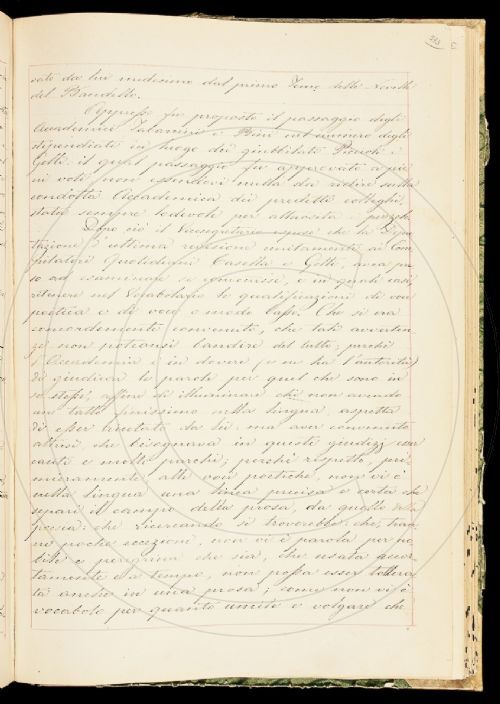 cato da lui medesimo dal primo Tomo delle Novelle
del Bandello.
Appresso fu proposto il passaggio degli
Accademici Talarini e Bini nel numero degli
stipendiati in luogo dei giubbilati Piccioli e
Gelli: il qual passaggio fu approvato a pie-
ni voti non essendovi nulla da ridire sulla
condotta Accademica dei predetti colleghi,
stata sempre lodevole per attività e
Dopo ciò il Vicesegretario espose che la Depu-
tazione d'ultima revisione unitamente ai Com-
pilatori Quotidiani Casella e Gotti, avea pre-
so ad esaminare se convenisse, e in quali casi,
ritenere nel Vocabolario le qualificazioni di voce
poetica e di voce o modo basso. Che si era
concordemente convenuto, che tali avverten-
ze non poteansi bandire del tutto; perché
l'Accademia è in dovere (e ne ha l'autorità)
di giudicar le parole per quel che sono in
se stesse, affine di illuminare chi non avendo
un tatto finissimo nella lingua, aspetta
di esser aiutato da lei: ma aver convenuto
altresì, che bisognava in questi giudizj esser
cauti e molto parchi; perché rispetto, pri-
mieramente alle voci poetiche, non vi è
nella lingua una linea precisa e certa che
separi il campo della prosa, da quello della
poesia: che ricercando si troverebbe che, han-
no poche eccezioni, non vi è parola per no-
bile e peregrina che sia, che usata accor-
tamente e a tempo, non possa esser tollera-
ta anche in una prosa; come non vi è
vocabolo per quanto umile e volgare che